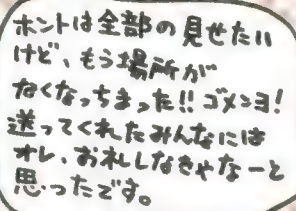 ホントは全部の見せたい
けど、もう場所が
なくなっちまった!!ゴメンヨ!
送ってくれたみんなには
オレ、お礼しなきゃなーと
思ったです。